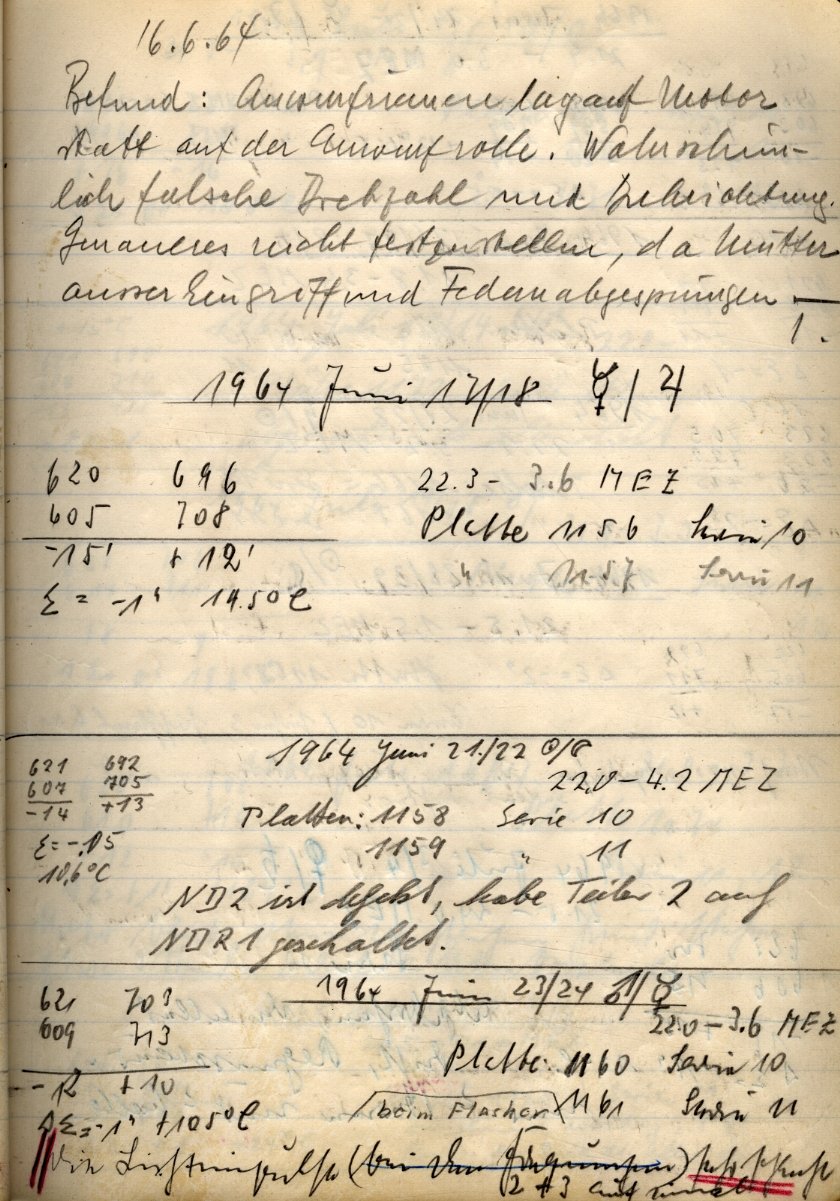 16.6.64
Befund: lag auf Motor
statt auf der . Wahrschein-
lich falsche Drehzahl und
Genaueres nicht festzustellen, da Mutter
ausser Eingriff und Federn abgesprungen
1.
1964 Juni 17/18 ☿ / ♃
620 696 22.3 - 3.6 MEZ
605 708 Platte 1156 Serie 10
-15' + 12' " 1157 Serie 11
Σ = -1" 14.5°C
1964 Juni 21./22
621 692 22.0 - 4.2 MEZ
607 705
-14 +13 Platten: 1158 Serie 10
Σ = -.05 1159 " 11
10,6°C
ND2 ist defekt, habe Teiler 2 auf
NDR1 geschaltet.
1964 Juni 23/24 ♂/☿
621 703 22.0 - 3.6 MEZ
609 713
-12 +10 Platte: 1160 Serie 10
ΔΣ = -1" +10.5°C beim Flashen 1161 Serie 11
Die Lichtimpulse (bei
2 + 3